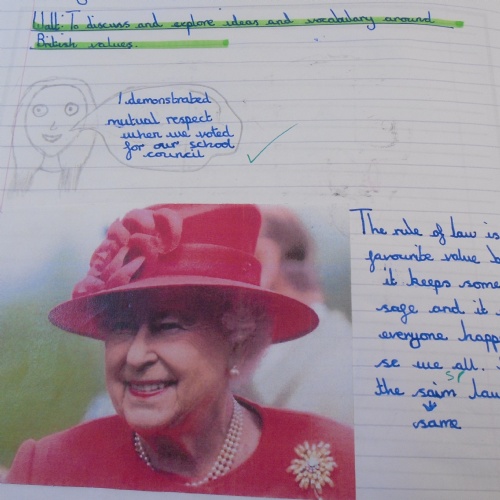 Walt: To discuss and explore ideas and vocabulary around
British values.
I demonstrated
mutual respect
when we voted
for our school
council
The rule of law is
favourite value b
it keeps some
sage and it
everyone happ
se we all.
sp
the saim law
same